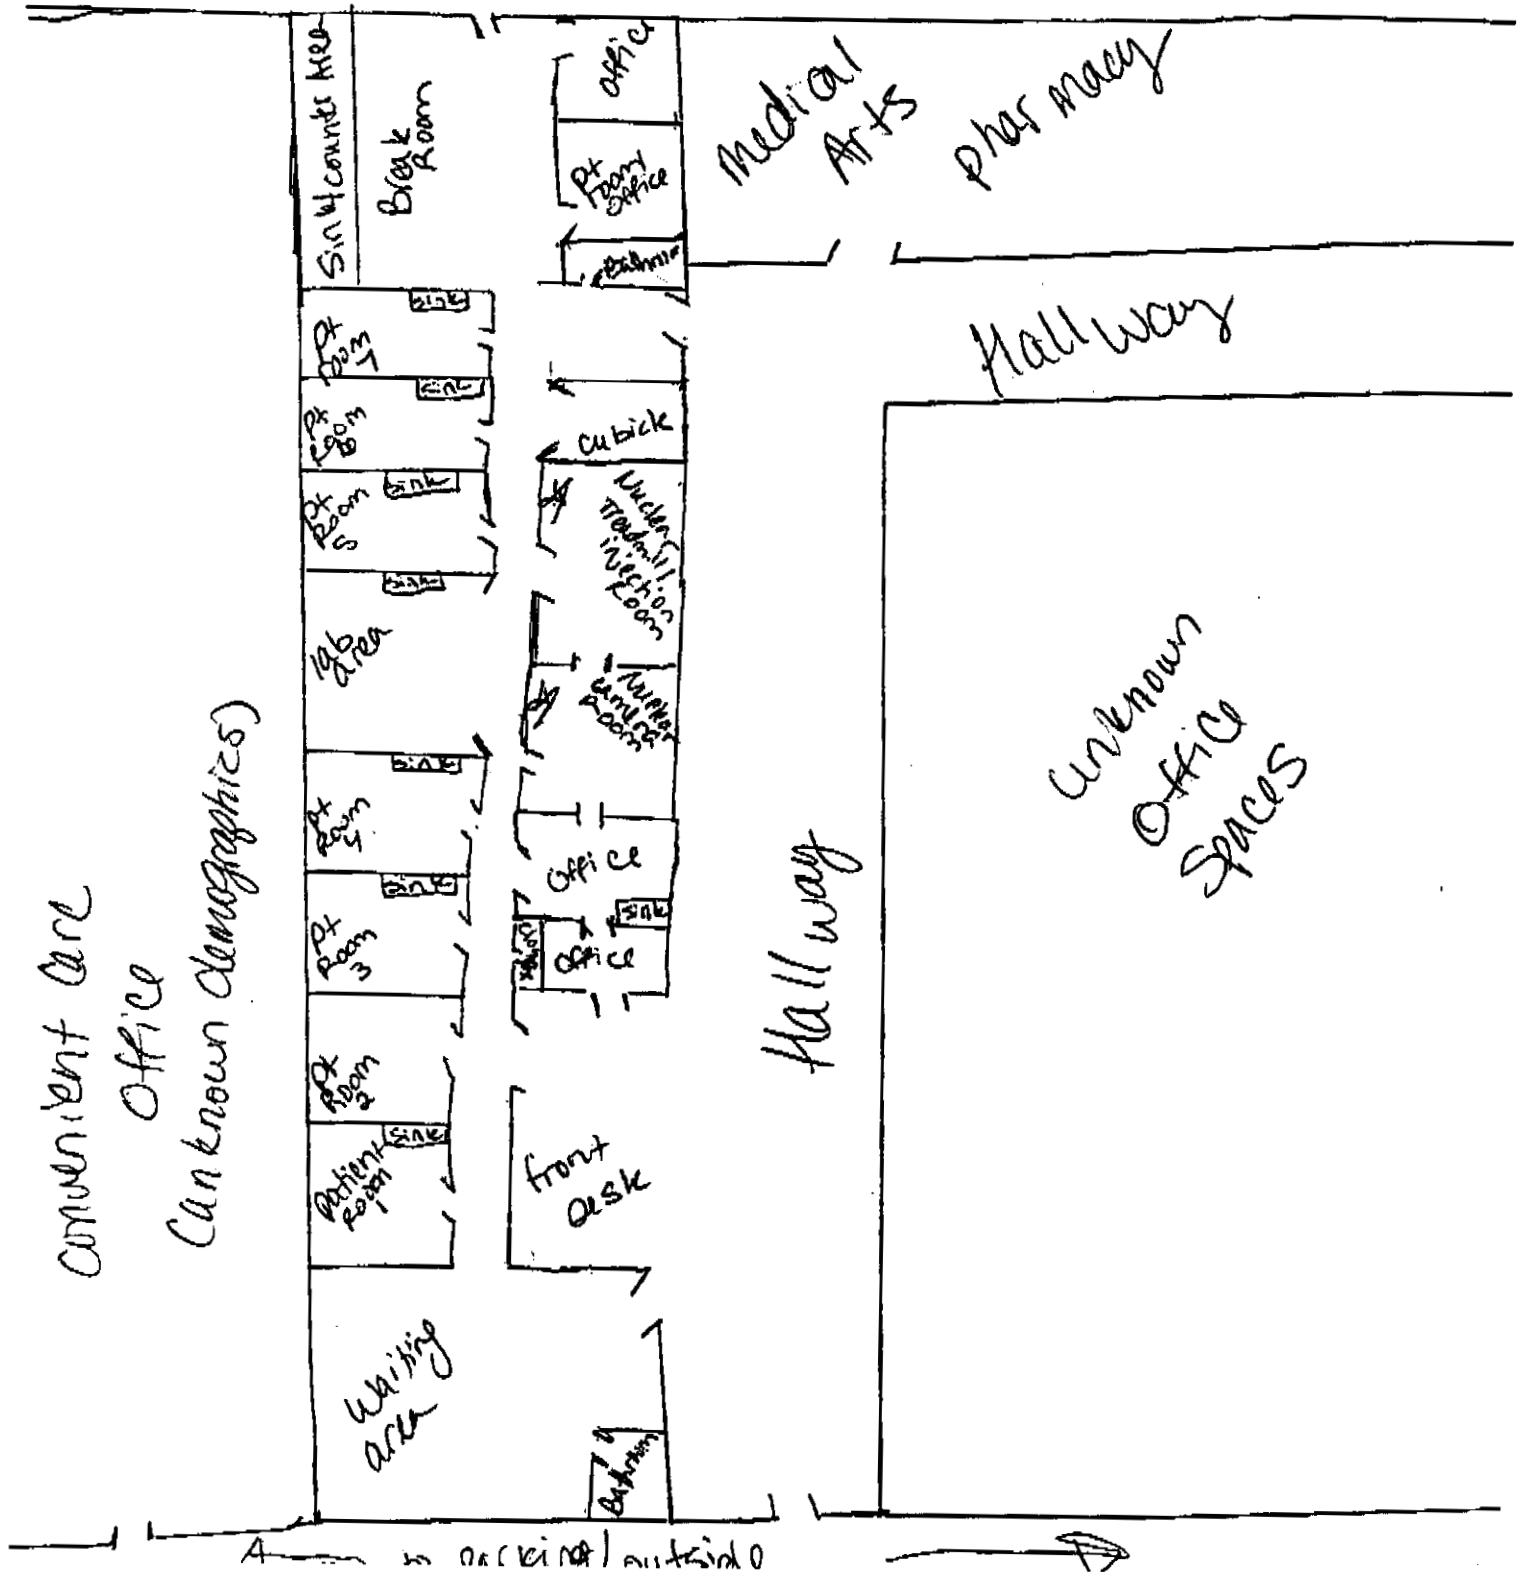 Sink/counter Area
Break
Room
office
Pt
room/
office
Bathroom
Medical
Arts
pharmacy
Hallway
sink
Pt
room
7
sink
Pt
room
6
sink
Pt
Room
5
cubicle
Nuclear
Treadmill
injection
Room
sink
lab
area
Nuclear
camera
Room
sink
Pt
Room
4
office
sink
Pt
Room
3
sink
office
Pt
Room
2
sink
Patient
Room
1
front
desk
waiting
area
Bathroom
Hallway
unknown
Office
Spaces
convenient care
Office
(unknown demographics)
parking/outside